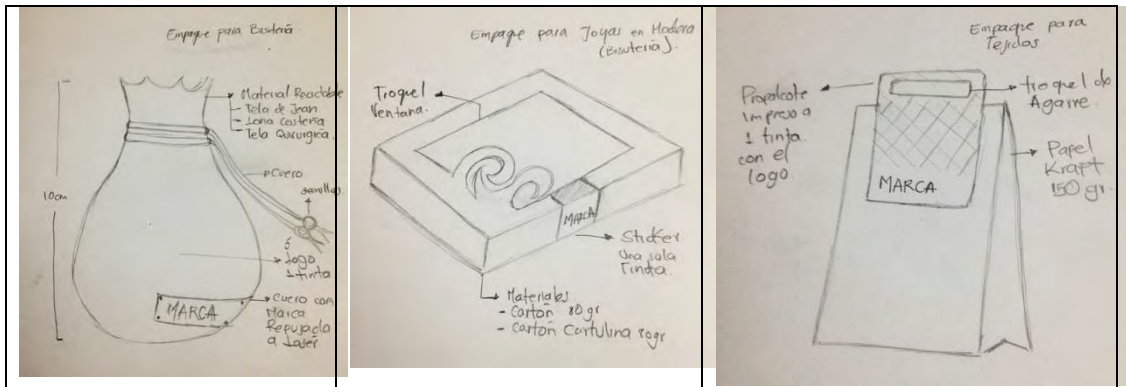 Empaque para Bisutería
10cm
Material Reactable
- Tela de Jean
- Lona Costeña
- Tela Quirurgica
Cuero
semillas
ó
Logo
1 tinta
MARCA
Cuero con
Marca
Repujada
a Laser
Empaque para Joyas en Madera
(Bisutería).
Troquel
Ventana.
MARCA
Sticker
Una sola
Tinta.
Materiales
- Cartón 80gr
- Cartón Cartulina 80gr
Empaque para
Tejidos
Propalcote
Impreso a
1 tinta
con el
logo.
troquel de
Agarre
Papel
Kraft
150 gr.
MARCA